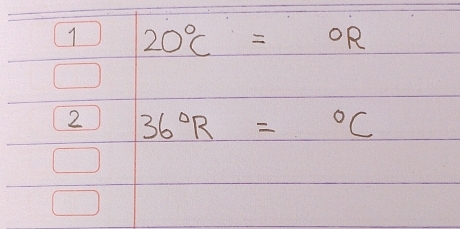 1 20°C = °R
2 36°R = °C